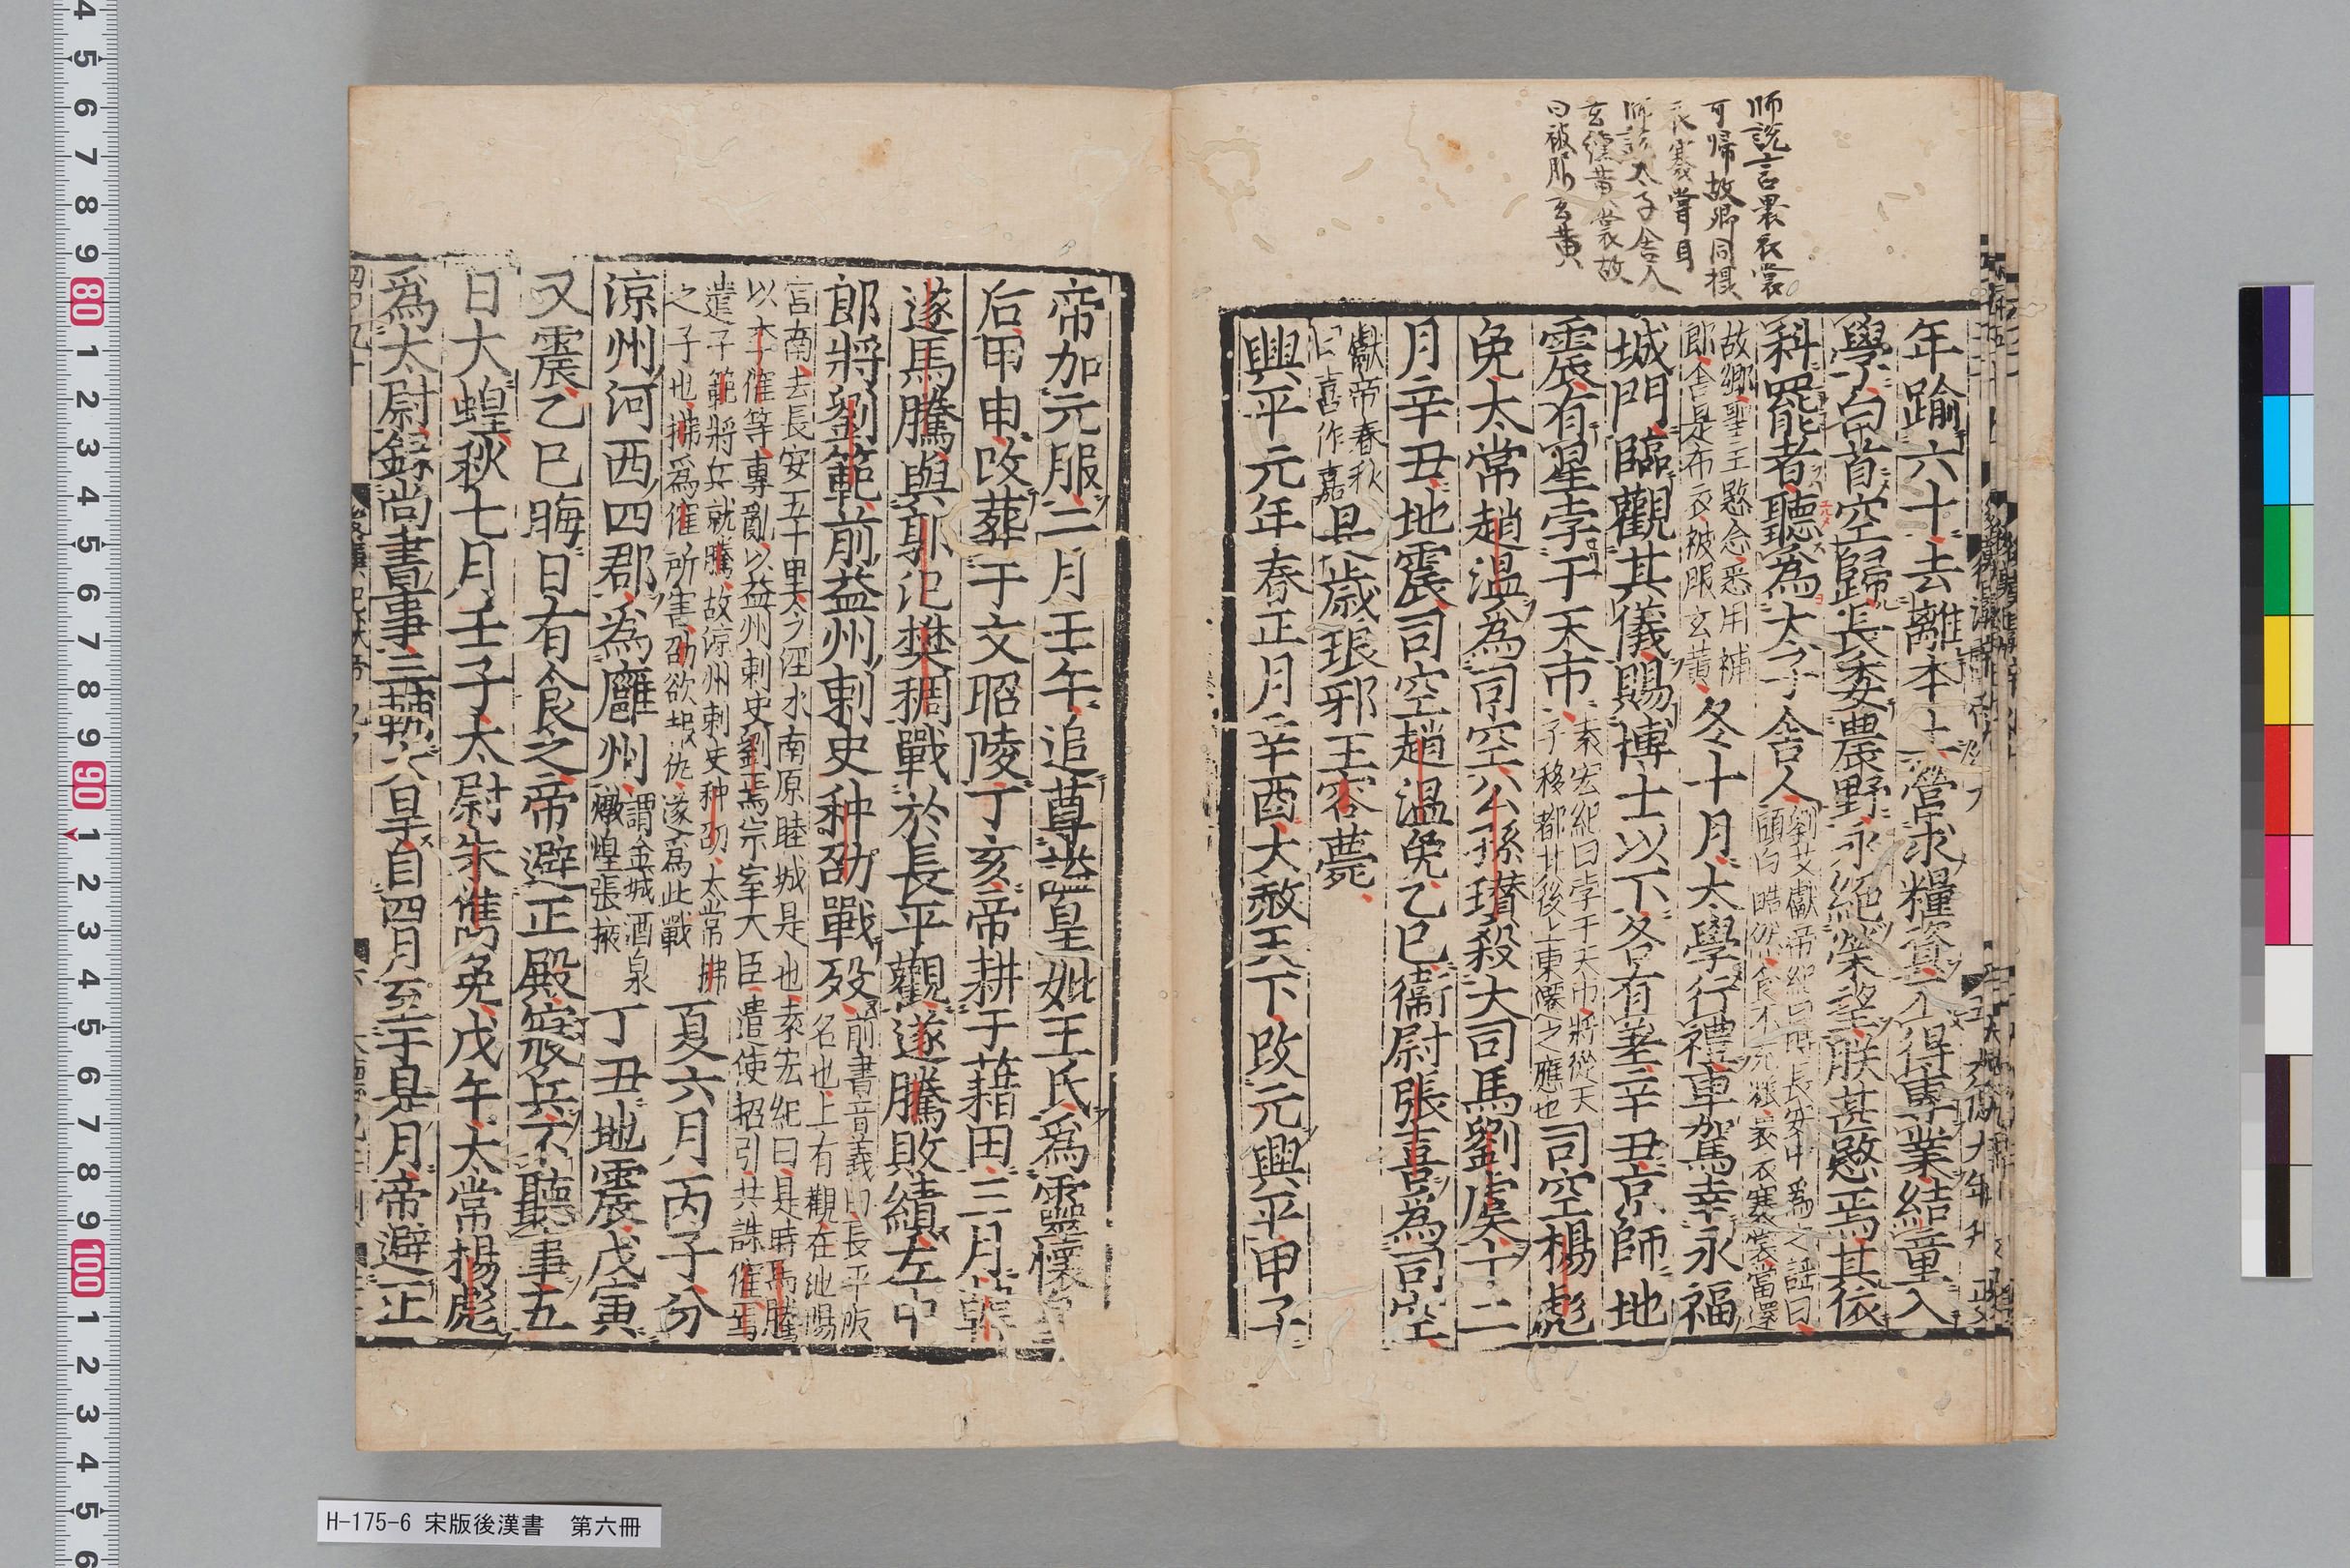 師説言裹衣裳
可歸故郷同攝
衣褰裳耳
師説太子舎人
玄纁黄裳故
曰被服玄黄
年踰六十去離本土營求糧資不得專業結童入
學白首空歸長委農野永絶榮望朕甚愍焉其依
科罷者聽爲太子舍人
劉艾獻帝紀曰時長安中爲之謡曰
頭白皓然食不充糧裹衣褰裳當還
故郷聖主愍念悉用補
郎舎是布衣被服玄黄
冬十月太學行禮車駕幸永福
城門臨觀其儀賜博士以下各有差辛丑京師地
震有星孛于天市
袁宏紀曰孛于天市將從天
子移都其後上東遷之應也
司空楊彪
免太常趙温爲司空公孫瓚殺大司馬劉虞十二
月辛丑地震司空趙温免乙巳衞尉張喜爲司空
獻帝春秋
曰喜作嘉
是歳琅邪王容薨
興平元年春正月辛酉大赦天下改元興平甲子
帝加元服二月壬午追尊謚皇妣王氏爲靈懷皇
后甲申改葬于文昭陵丁亥帝耕于藉田三月韓
遂馬騰與郭汜樊稠戰於長平觀遂騰敗績左中
郎將劉範前益州刺史种劭戰歿
前書音義曰長平坂
名也上有觀在池陽
宮南去長安五十里今涇水南原睦城是也袁宏紀曰是時馬騰
以李傕等專亂以益州刺史劉焉宗室大臣遣使招引共誅傕焉
遣子範將兵就騰故涼州刺史种劭太常拂
之子也拂爲傕所害劭欲報仇遂爲此戰
夏六月丙子分
涼州河西四郡爲廱州
謂金城酒泉
燉煌張掖
丁丑地震戊寅
又震乙巳晦日有食之帝避正殿寢兵不聽事五
日大蝗秋七月壬子太尉朱儁免戊午太常楊彪
爲太尉錄尚書事三輔大旱自四月至于是月帝避正
H-175-6 宋版後漢書 第六冊